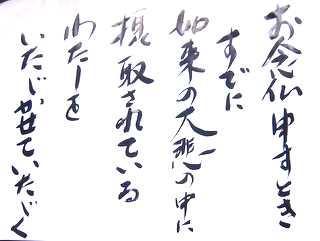 お念仏申すとき
すでに
如来の大悲の中に
摂取されている
わたしを
いただかせていただく